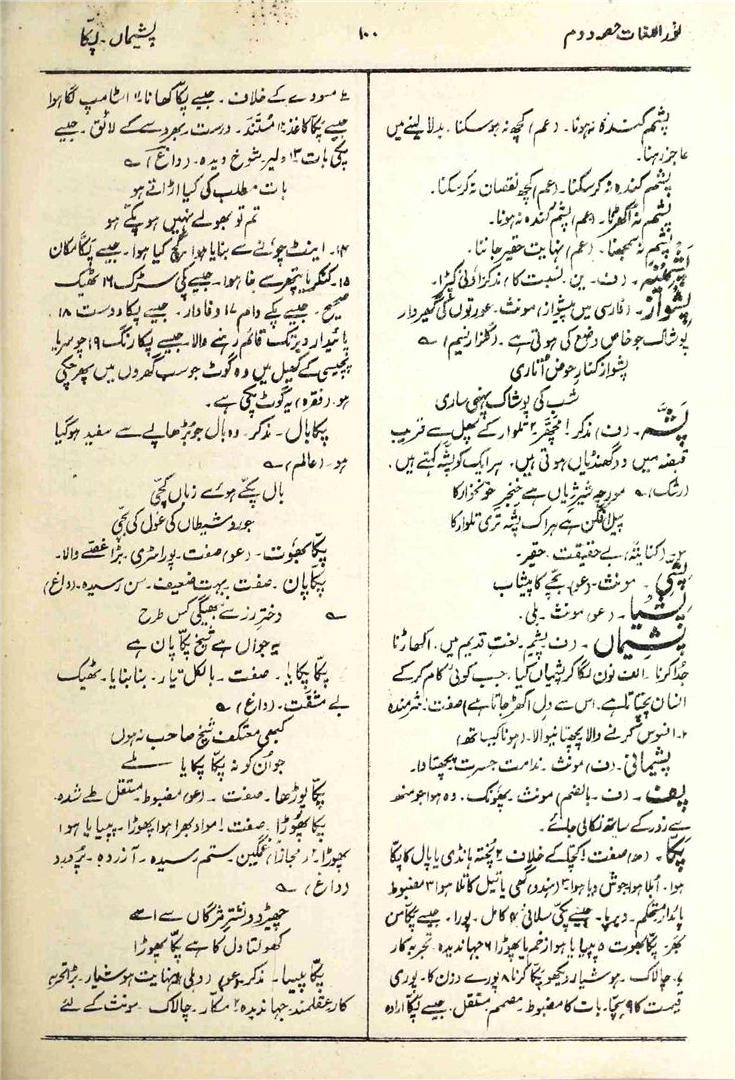 نور اللغات حصہ دوم
۱۰۰
پشیماں۔ پکّا
پشم کندہ نہ ہونا۔ (عم) کچھ نہ ہوسکنا۔ بدلا لینے میں
عاجز رہنا۔
پشم کندہ نہ کرسکنا۔ (عم) کچھ نقصان نہ کرسکنا۔
پشم نہ اُکھڑنا۔ (عم) پشم کندہ نہ ہونا۔
پشم نہ سمجھنا۔ (عم) نہایت حقیر جاننا۔
پشمینہ۔ (ف۔ ین۔ نسبت کا) مذکر اونی کپڑا۔
پشواز۔ (فارسی میں پیشواز) مونث۔ عورتوں کی گھیردار
پوشاک جو خاص وضع کی ہوتی ہے۔ (گلزار نسیم) ؎
پشواز کنارِ حوض اُتاری
شب کی پوشاک پہنی ساری
پشّہ۔ (ف) مذکر ۱ مچھّر ۲ تلوار کے پھل سے قریب
قبضہ میں دو گھنڈیاں ہوتی ہیں، ہر ایک کو پشّہ کہتے ہیں۔
(رشک) ؎ مورچہ شیرِ ژیاں ہے خنجرِ خونخوار کا
پیل افگن ہے ہر اک پشّہ تری تلوار کا
۳۔ (کنایتہً) بے حقیقت۔ حقیر۔
پشّی۔ مونث۔ (عو) بچّے کا پیشاب
پشیا۔ (عو) مونث۔ بلی۔
پشیماں۔ (ف۔ پشم۔ لغت قدیم میں۔ اکھاڑنا
جُدا کرنا۔ الف نون لگا کر پشیماں کیا۔ جب کوئی کام کرکے
انسان پچتاتا ہے۔ اس سے دل اکھڑ جاتا ہے) صفت ۱ شرمندہ
۲۔ افسوس کرنے والا پچھتانیوالا۔ (ہونا کیساتھ)
پشیمانی۔ (ف) مونث۔ ندامت حسرت پچھتاوا۔
پف۔ (ف۔ بالضم) مونث۔ پھونک۔ وہ ہوا جو منھ
سے زور کے ساتھ نکالی جائے۔
پکّا۔ (ھ) صفت ۱ کچا کے خلاف ۲ پختہ ہانڈی یا پال کا پکا
ہوا۔ اُبلا ہوا جوش دیا ہوا ۳ (ہندو) گھی یا تیل کا تلا ہوا ۴ مضبوط
پائدار مستحکم۔ دیرپا۔ جیسے پکّی سلائی کامل۔ پورا۔ جیسے پکّا من
بھر۔ پکّا بھوت ۵ پیپایا ہوا زخم یا پھوڑا ۶ جہاندیدہ۔ تجربہ کار
۷۔ چالاک۔ ہوشیار۔ دیکھو پکّا کرنا ۸ پورے وزن کا۔ پوری
قیمت کا ۹ سچّا۔ بات کا مضبوط۔ مصمم مستقل۔ جیسے پکّا ارادہ
مسودے کے خلاف۔ جیسے پکّا کھاتا ۱۱ اسٹامپ لگا ہوا
جیسے پکّا کاغذ ۱۲ مُستَند۔ درست بھروسے کے لائق۔ جیسے
پکّی بات ۱۳ دلیر شوخ دیدہ۔ (داغ) ؎
بات مطلب کی کیا اڑاتے ہو
تم تو بھولے نہیں ہو پکّے ہو
۱۴۔ اینٹ چونے سے بنایا ہوا گچ کیا ہوا۔ جیسے پکّا مکان
۱۵۔ کنکر یا پتھر سے بنا ہوا۔ جیسے پکی سڑک ۱۶ ٹھیک
صحیح۔ جیسے پکے دام ۱۷ وفادار۔ جیسے پکا دوست ۱۸۔
پائیدار دیر تک قائم رہنے والا۔ جیسے پکا رنگ ۱۹ چوسر یا
پچیسی کے کھیل میں وہ گوٹ جو سب گھروں میں پھر چکی
ہو۔ (فقرہ) یہ گوٹ پکّی ہے۔
پکا بال۔ مذکر۔ وہ بال جو بڑھاپے سے سفید ہوگیا
ہو۔ (عالم) ؎
بال پکّے ہوئے زباں کچّی
جورو شیطاں کی غول کی بچّی
پکّا بھوت۔ (عو) صفت۔ پورا سڑی۔ بڑا غصّے والا۔
پکّا پان۔ صفت۔ بہت ضعیف۔ سن رسیدہ۔ (داغ)
؎ دختر رز سے بھیگی کس طرح
یہ جواں ہے شیخ پکّا پان ہے
پکّا پکایا۔ صفت۔ بالکل تیار۔ بنا بنایا۔ ٹھیک
بے مشقّت۔ (داغ) ؎
کبھی معتکف شیخ صاحب نہ ہوں
جو اُن کو نہ پکّا پکایا ملے
پکّا پوڑھا۔ صفت۔ (عو) مضبوط۔ مستقل طے شدہ۔
پکّا پھوڑا۔ صفت ۱ مواد بھرا ہوا پھوڑا۔ پیپایا ہوا
پھوڑا ۲ (مجازاً) غمگین۔ ستم رسیدہ۔ آزردہ۔ پُر درد
(داغ) ؎
چھیڑ دو نشترِ مژگاں سے اسے
کھولتا دل کا ہے پکّا پھوڑا
پکّا پیسا۔ مذکر۔ (عو) (دہلی) ۱ نہایت ہوشیار۔ بڑا تجربہ
کار عقلمند جہاندیدہ ۲ مکّار۔ چالاک۔ مونث کے لئے